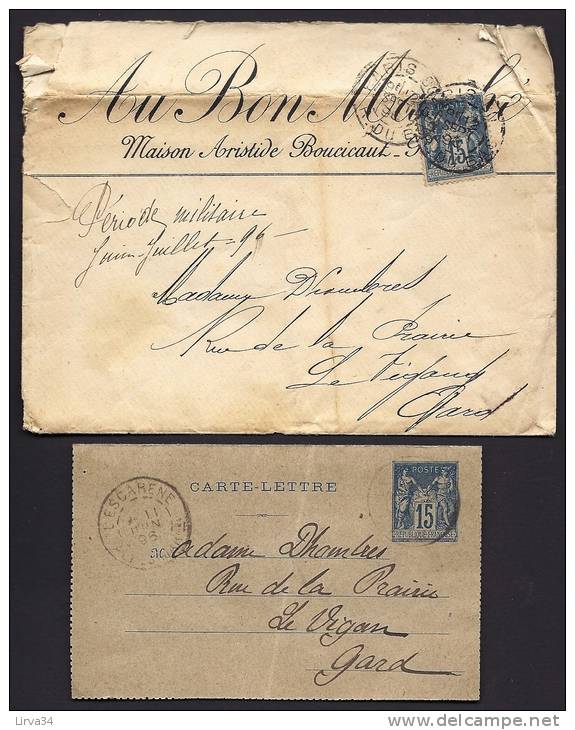 Au Bon Marché
Maison Aristide Boucicaut
POSTE
15
Période militaire
Juin-Juillet-96-
Madame Dhombres
Rue de la Prairie
Le Vigan
Gard
L'ESCARENE
11
JUIN
96
CARTE-LETTRE
POSTE
15
REPUBLIQUE FRANÇAISE
Madame Dhombres
Rue de la Prairie
Le Vigan
Gard
Lirva34
www.delcampe.net